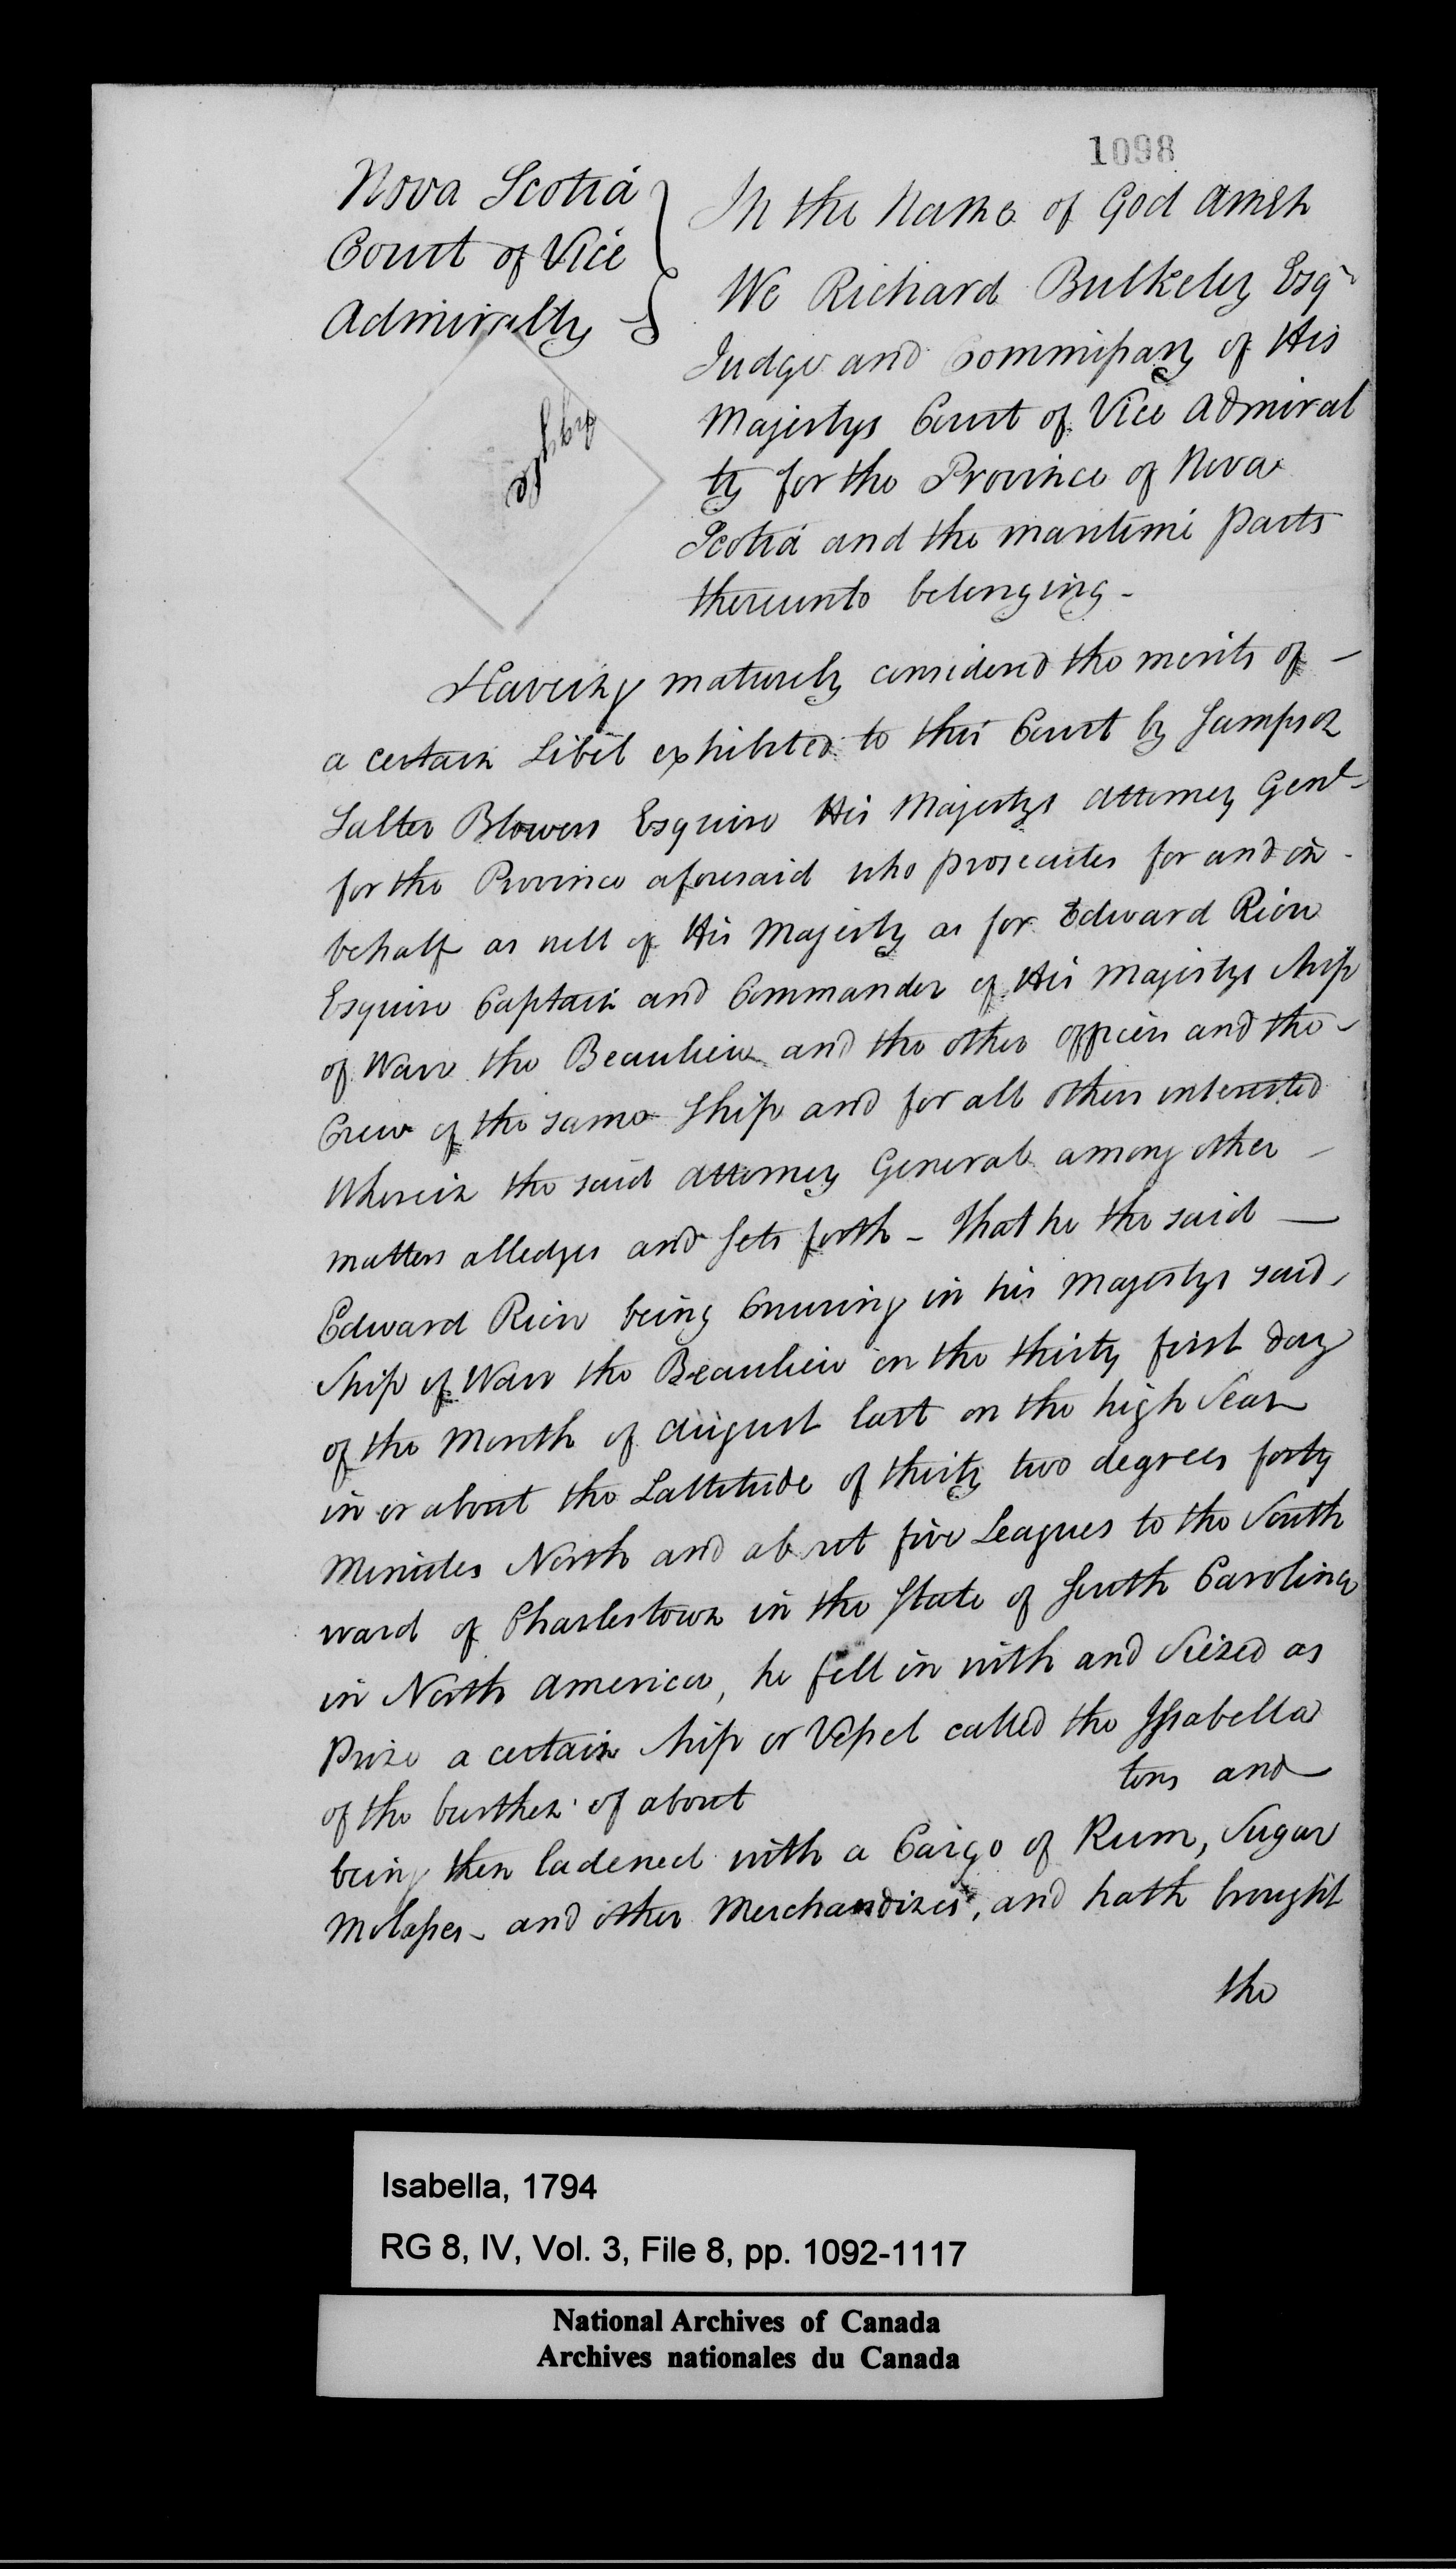 1098
Nova Scotia
Court of Vice
Admiralty
In the Name of God Amen
We Richard Bulkeley Esqr
Judge and Commissary of His
Majestys Court of Vice Admiral
ty for the Province of Nova
Scotia and the maritime parts
thereunto belonging -
Having maturely considered the merits of -
a certain Libil exhibited to this Court by Sampson
Salter Blowers Esquire His Majestys Attorney Genl -
for the Province aforesaid who prosecutes for and in -
behalf as well of His Majesty as for Edward Riou
Esquire Captain and Commander of His Majestys Ship
of Warr the Beaulieu and the other officers and the -
Crew of the same Ship and for all others interested
Wherein the said Attorney General among other -
matters alledges and sets forth - That he the said —
Edward Riou being Cruising in his Majestys said,
Ship of Warr the Beaulieu on the thirty first day
of the Month of August last on the high Seas
in or about the Lattitude of thirty two degrees forty
Minutes North and about five Leagues to the South
ward of Charlestown in the State of South Carolina
in North America, he fell in with and Seized as
Prize a certain Ship or Vessel called the Issabella
of the burthen of about tons and
being then ladened with a Cargo of Rum, Sugar
Molasses - and other Merchandizes, and hath brought
the
Isabella, 1794
RG 8, IV, Vol. 3, File 8, pp. 1092-1117
National Archives of Canada
Archives nationales du Canada